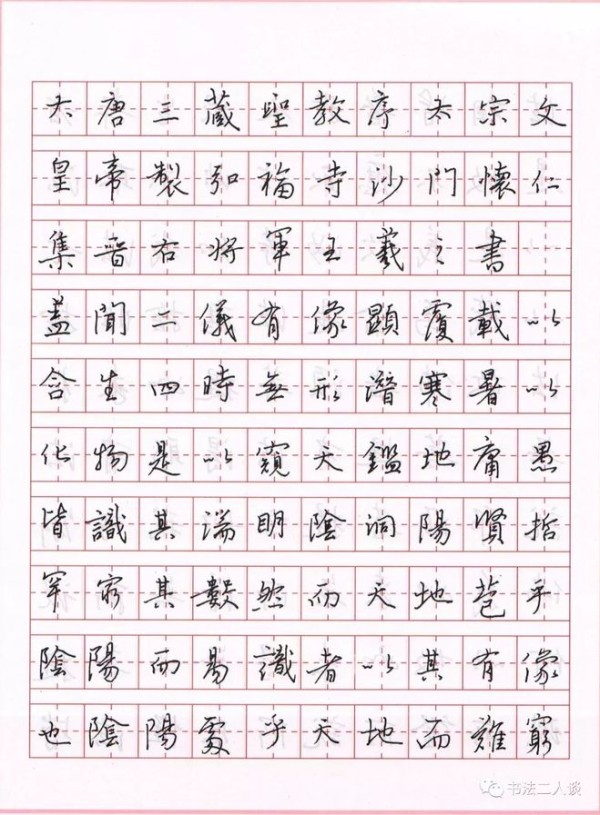 大唐三藏聖教序太宗文
皇帝製弘福寺沙門懷仁
集晉右將軍王羲之書
蓋聞二儀有像顯覆載以
含生四時無形潛寒暑以
化物是以窺天鑑地庸愚
皆識其端明陰洞陽賢哲
罕窮其數然而天地苞乎
陰陽而易識者以其有像
也陰陽處乎天地而難窮
书法二人谈